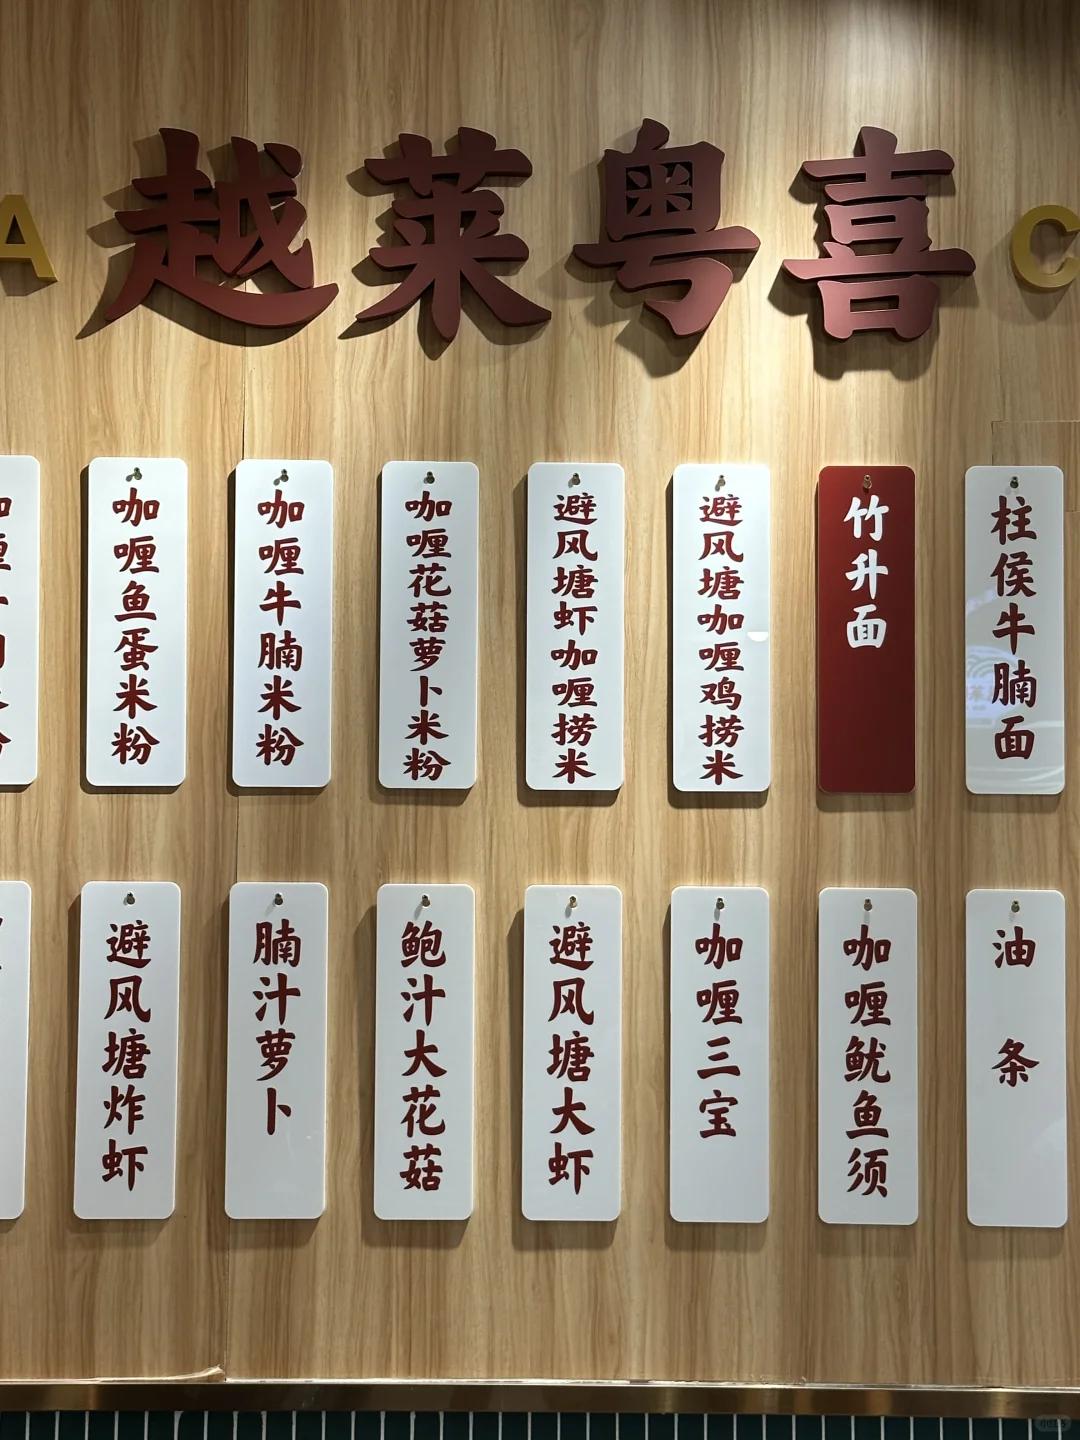 A
越莱粤喜
C
咖喱鱼蛋米粉
咖喱牛腩米粉
咖喱花菇萝卜米粉
避风塘虾咖喱捞米
避风塘咖喱鸡捞米
竹升面
柱侯牛腩面
避风塘炸虾
腩汁萝卜
鲍汁大花菇
避风塘大虾
咖喱三宝
咖喱鱿鱼须
油条